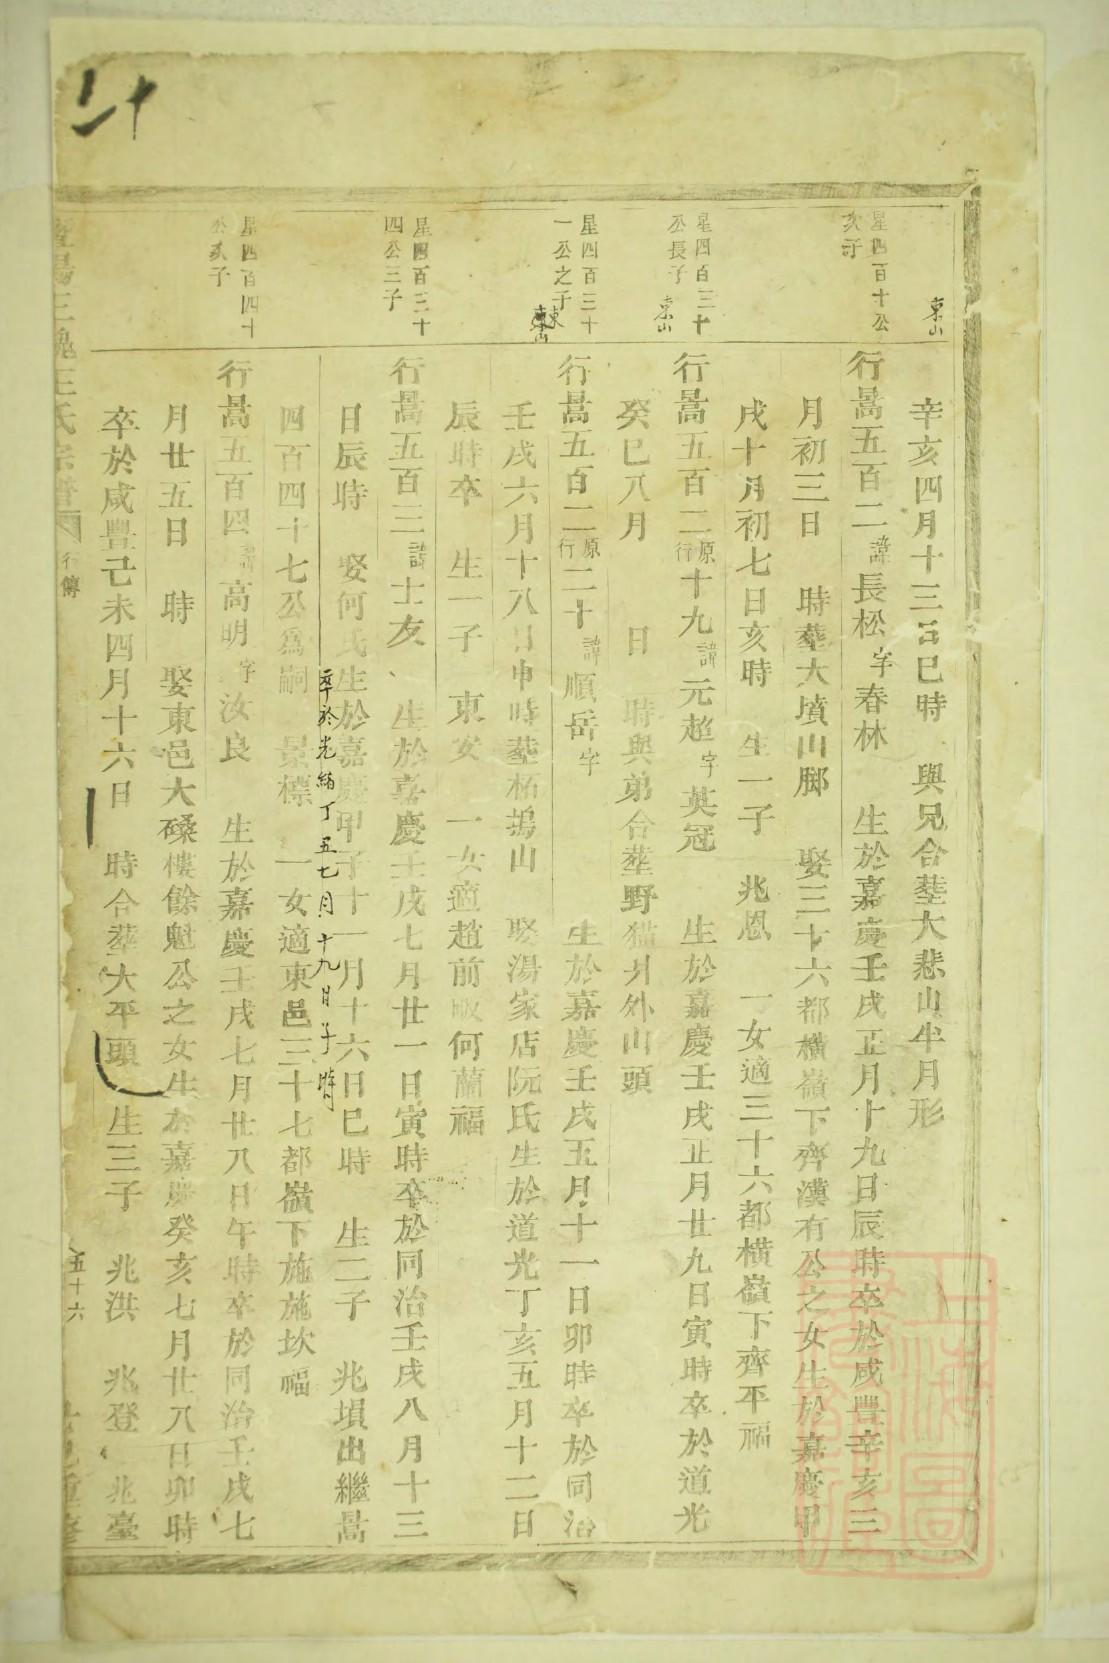 二十
東山
辛亥四月十三日巳時　與兄合塟大悲山半月形
星四百十公
亥子
行暠五百二諱長松字春林　生於嘉慶壬戌正月十九日辰時卒於咸豐辛亥三
月初三日　時塟大墳山脚　娶三十六都橫嶺下齊漢有公之女生於嘉慶甲
戌十月初七日亥時　生一子　兆恩　一女適三十六都橫嶺下齊平福
星四百三十
公長子
東山
行暠五百二原行十九諱元超字英冠　生於嘉慶壬戌正月廿九日寅時卒於道光
癸巳八月　日　時與弟合塟野猫外山頭
星四百三十
一公之子
東山
行暠五百二原行二十諱順岳字　生於嘉慶壬戌五月十一日卯時卒於同治
壬戌六月十八日申時塟栢塢山　娶湯家店阮氏生於道光丁亥五月十二日
辰時卒　生一子　東安　一女適趙前畈何蘭福
星四百三十
四公三子
行暠五百三諱士友　生於嘉慶壬戌七月廿一日寅時卒於同治壬戌八月十三
日辰時　娶何氏生於嘉慶甲子十一月十六日巳時　生二子　兆墳出繼暠
卒於光緒丁丑七月十九日子時
四百四十七公為嗣　景標　一女適東邑三十七都嶺下施施坎福
星四百四十
公亥子
行暠五百四諱高明字汝良　生於嘉慶壬戌七月廿八日午時卒於同治壬戌七
月廿五日　時　娶東邑大磉樓餘魁公之女生於嘉慶癸亥七月廿八日卯時
卒於咸豐己未四月十六日　時合塟大平頭　生三子　兆洪　兆登　兆臺
暨陽三槐王氏宗譜　行傳　五十六　重修